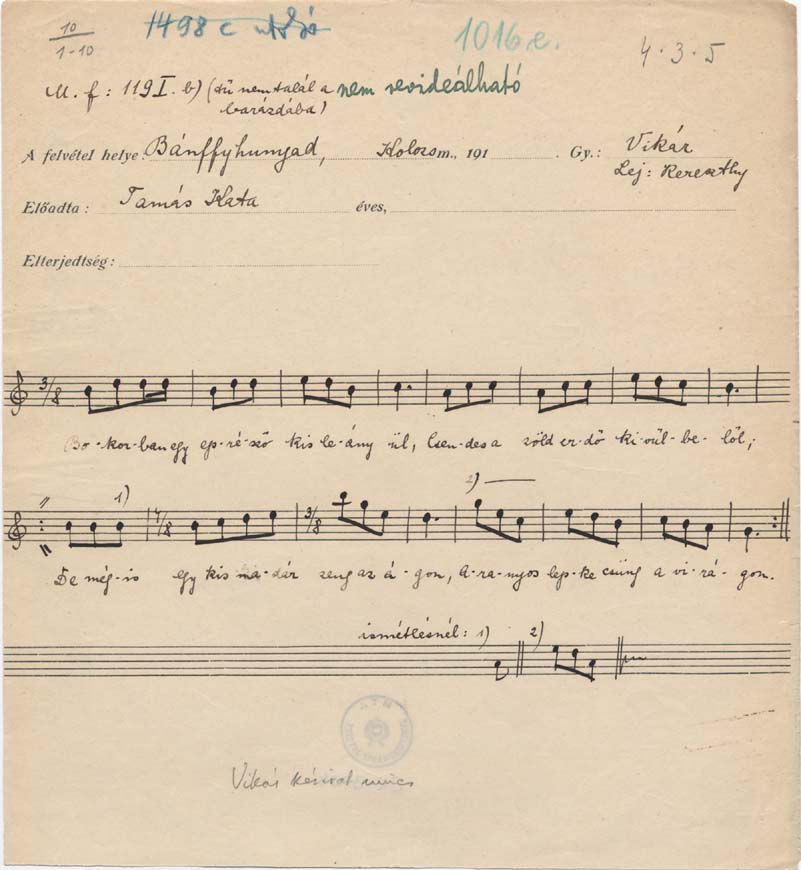 10
1-10
1498 c
1016 e.
4·3·5
M. f: 119 I. b) (tű nem talál a nem revideálható
barázdába)
A felvétel helye: Bánffyhunyad, Kolozsm., 191 . Gy.: Vikár
Lej: Kereszthy
Előadta: Tamás Kata éves,
Elterjedtség:
3/8
Bo-kor-ban egy ep-ré-sző kis le-ány ül, Csen-des a zöld er-dő ki-vül-be-lől;
1) 4/8 3/8 2)
De még-is egy kis ma-dár zeng az á-gon, A-ra-nyos lep-ke csüng a vi-rá-gon.
ismétlésnél: 1) 2)
Vikár kézirat nincs